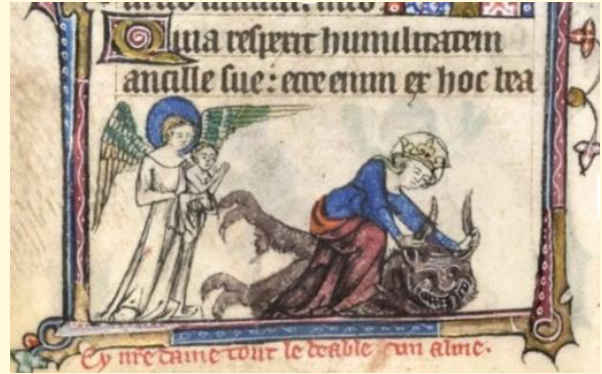 Quia respexit humilitatem
ancille sue: ecce enim ex hoc bea
Cy nre dame tout le deable alme.